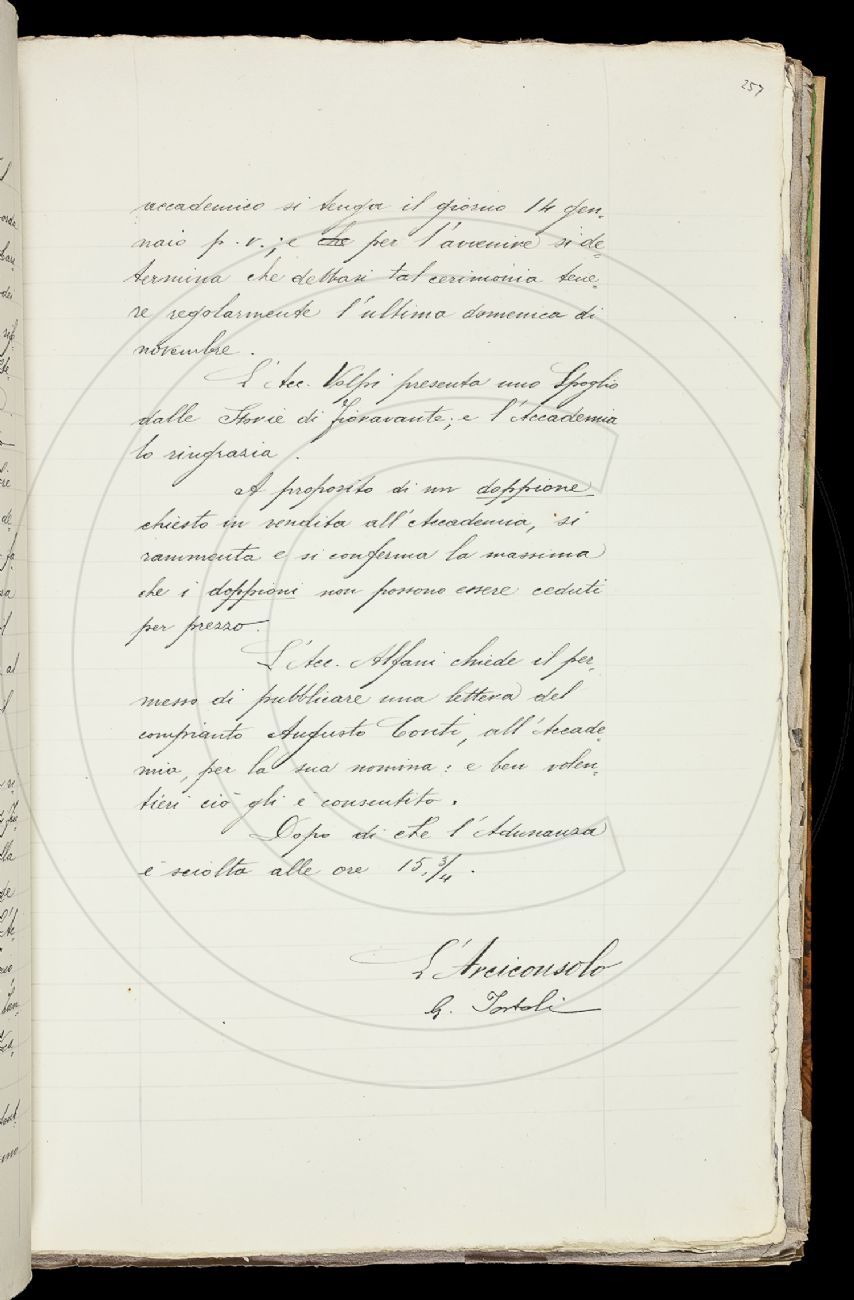 257
accademico si tenga il giorno 14 gen-
naio p. v.; e che per l'avvenire si de-
termina che debbasi tal cerimonia tene-
re regolarmente l'ultima domenica di
novembre.
L'Acc. Volpi presenta uno Spoglio
dalle Storie di Fioravante; e l'Accademia
lo ringrazia.
A proposito di un doppione
chiesto in vendita all'Accademia, si
rammenta e si conferma la massima
che i doppioni non possono essere ceduti
per prezzo.
L'Acc. Alfani chiede il per-
messo di pubblicare una lettera del
compianto Augusto Conti, all'Accade-
mia, per la sua nomina: e ben volen-
tieri ciò gli è consentito.
Dopo di che l'Adunanza
è sciolta alle ore 15, 3/4.
L'Arciconsolo
G. Tortoli